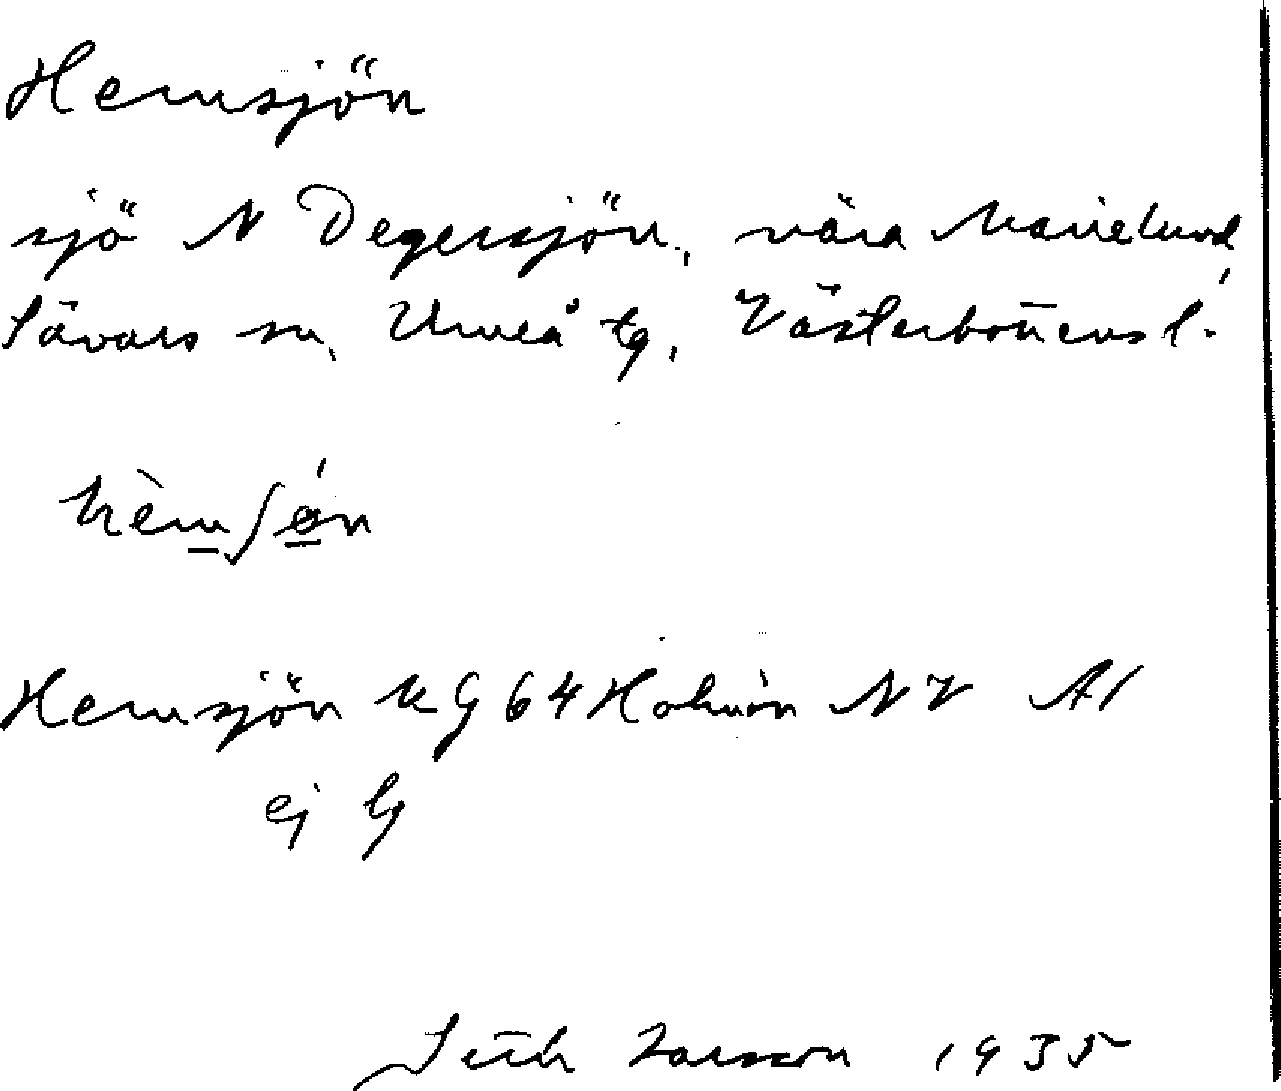 Hemsjön
sjö N Degersjön, nära Marielund,
Sävars sn, Umeå tg, Västerbottens l.
hèmʃǿn
Hemsjön kg 64 Holmön NV A1
ej G
Seth Larsson 1935